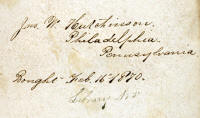 Jno. W. Hutchinson.
Philadelphia.
Pennsylvania
Bought Feb. 15 1870.
Library No